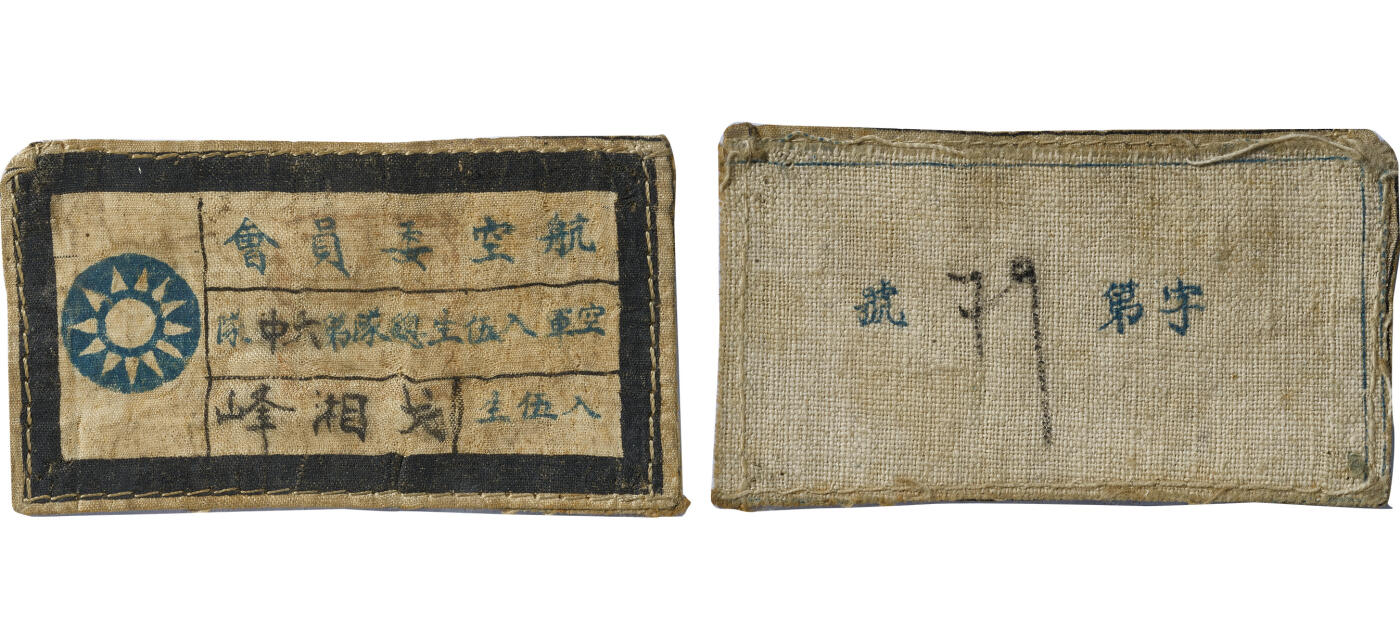 航空委員會
空軍入伍生總隊第六中隊
入伍生 湘峰
字第79號